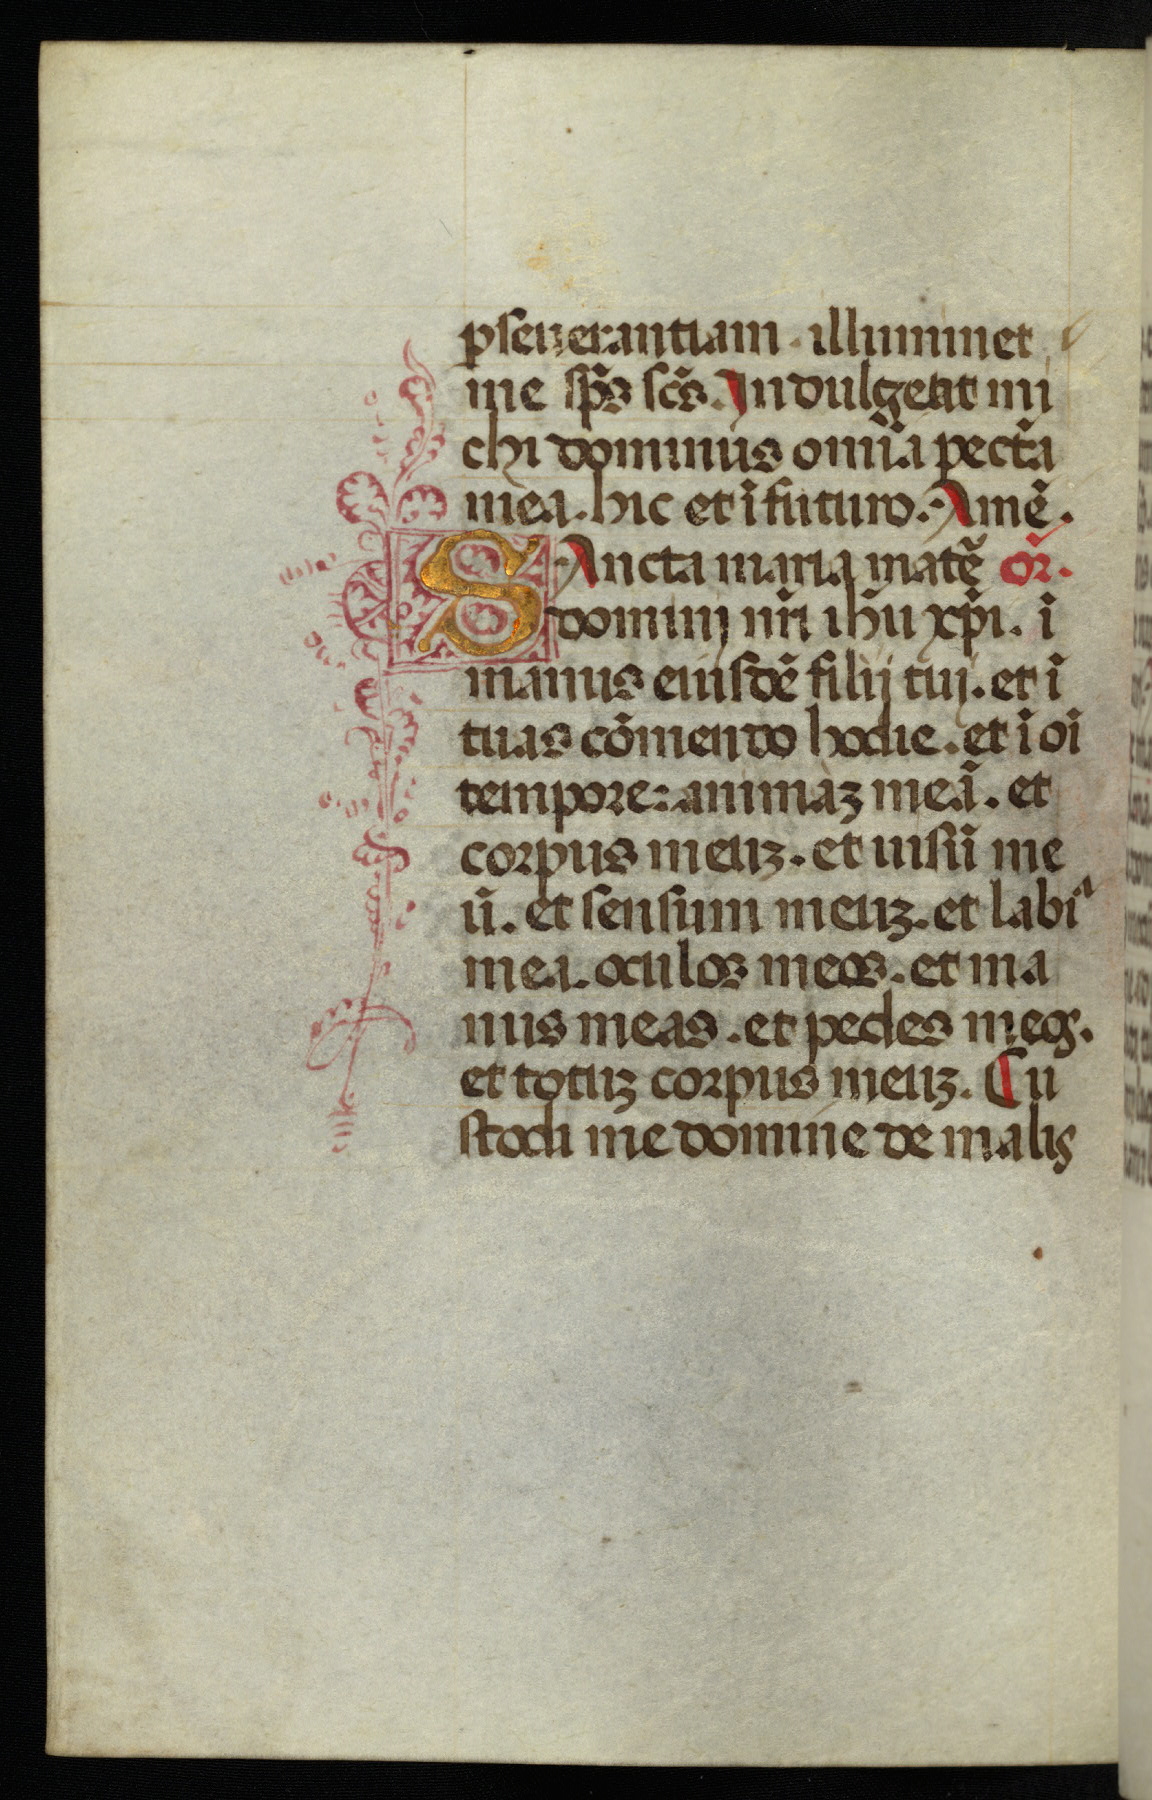 pseuerantiam. illuminet
me sp̃s sc̃s. Indulgeat mi
chi dominus om̃ia pecc̃ta
mea. hic et ĩ futuro. Amẽ.
SAncta maria mat̃e or̃.
dominj nr̃i ihũ xp̃i. ĩ
manus eiusdẽ filij tuj. et ĩ
tuas cõmendo hodie. et ĩ oĩ
tempore: animaz meã. et
corpus meuz. et uisũ me
ũ. et sensum meuz. et labia
mea. oculos meos. et ma
nus meas. et pedes meos.
et totuz corpus meuz. Cu
stodi me domine de malis